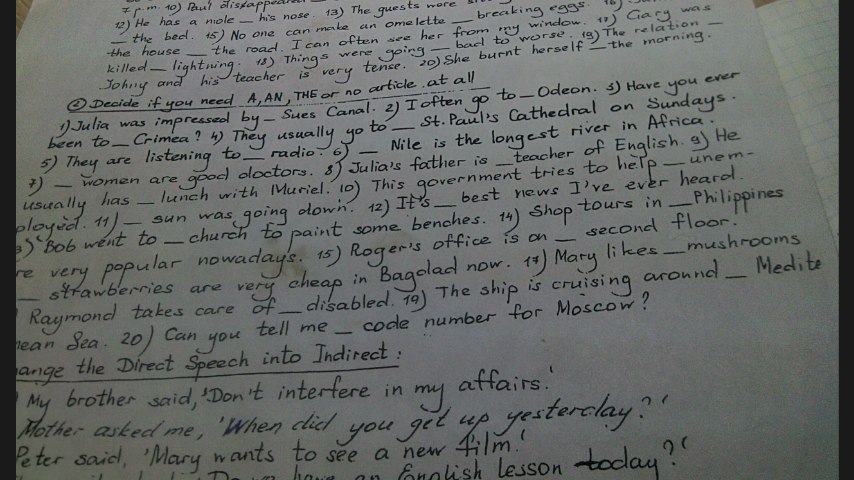 7 p.m. 10) Paul disappeared
12) He has a mole _ his nose. 13) The guests were
_ the bed. 15) No one can make an omelette _ breaking eggs. 16)
the house _ the road. I can often see her from my window. 17) Gary was
killed _ lightning. 18) Things were going _ bad to worse. 19) The relation _
Johny and his teacher is very tense. 20) She burnt herself _ the morning.
② Decide if you need A, AN, THE or no article at all
1) Julia was impressed by _ Sues Canal. 2) I often go to _ Odeon. 3) Have you ever
been to _ Crimea? 4) They usually go to _ St. Paul's Cathedral on Sundays.
5) They are listening to _ radio. 6) _ Nile is the longest river in Africa.
7) _ women are good doctors. 8) Julia's father is _ teacher of English. 9) He
usually has _ lunch with Muriel. 10) This government tries to help _ unem-
ployed. 11) _ sun was going down. 12) It's _ best news I've ever heard.
3) Bob went to _ church to paint some benches. 14) Shop tours in _ Philippines
re very popular nowadays. 15) Roger's office is on _ second floor.
_ strawberries are very cheap in Bagdad now. 17) Mary likes _ mushrooms
) Raymond takes care of _ disabled. 19) The ship is cruising around _ Medite
nean Sea. 20) Can you tell me _ code number for Moscow?
ange the Direct Speech into Indirect:
) My brother said, 'Don't interfere in my affairs.'
Mother asked me, 'When did you get up yesterday?'
Peter said, 'Mary wants to see a new film.'
have an English lesson today?'